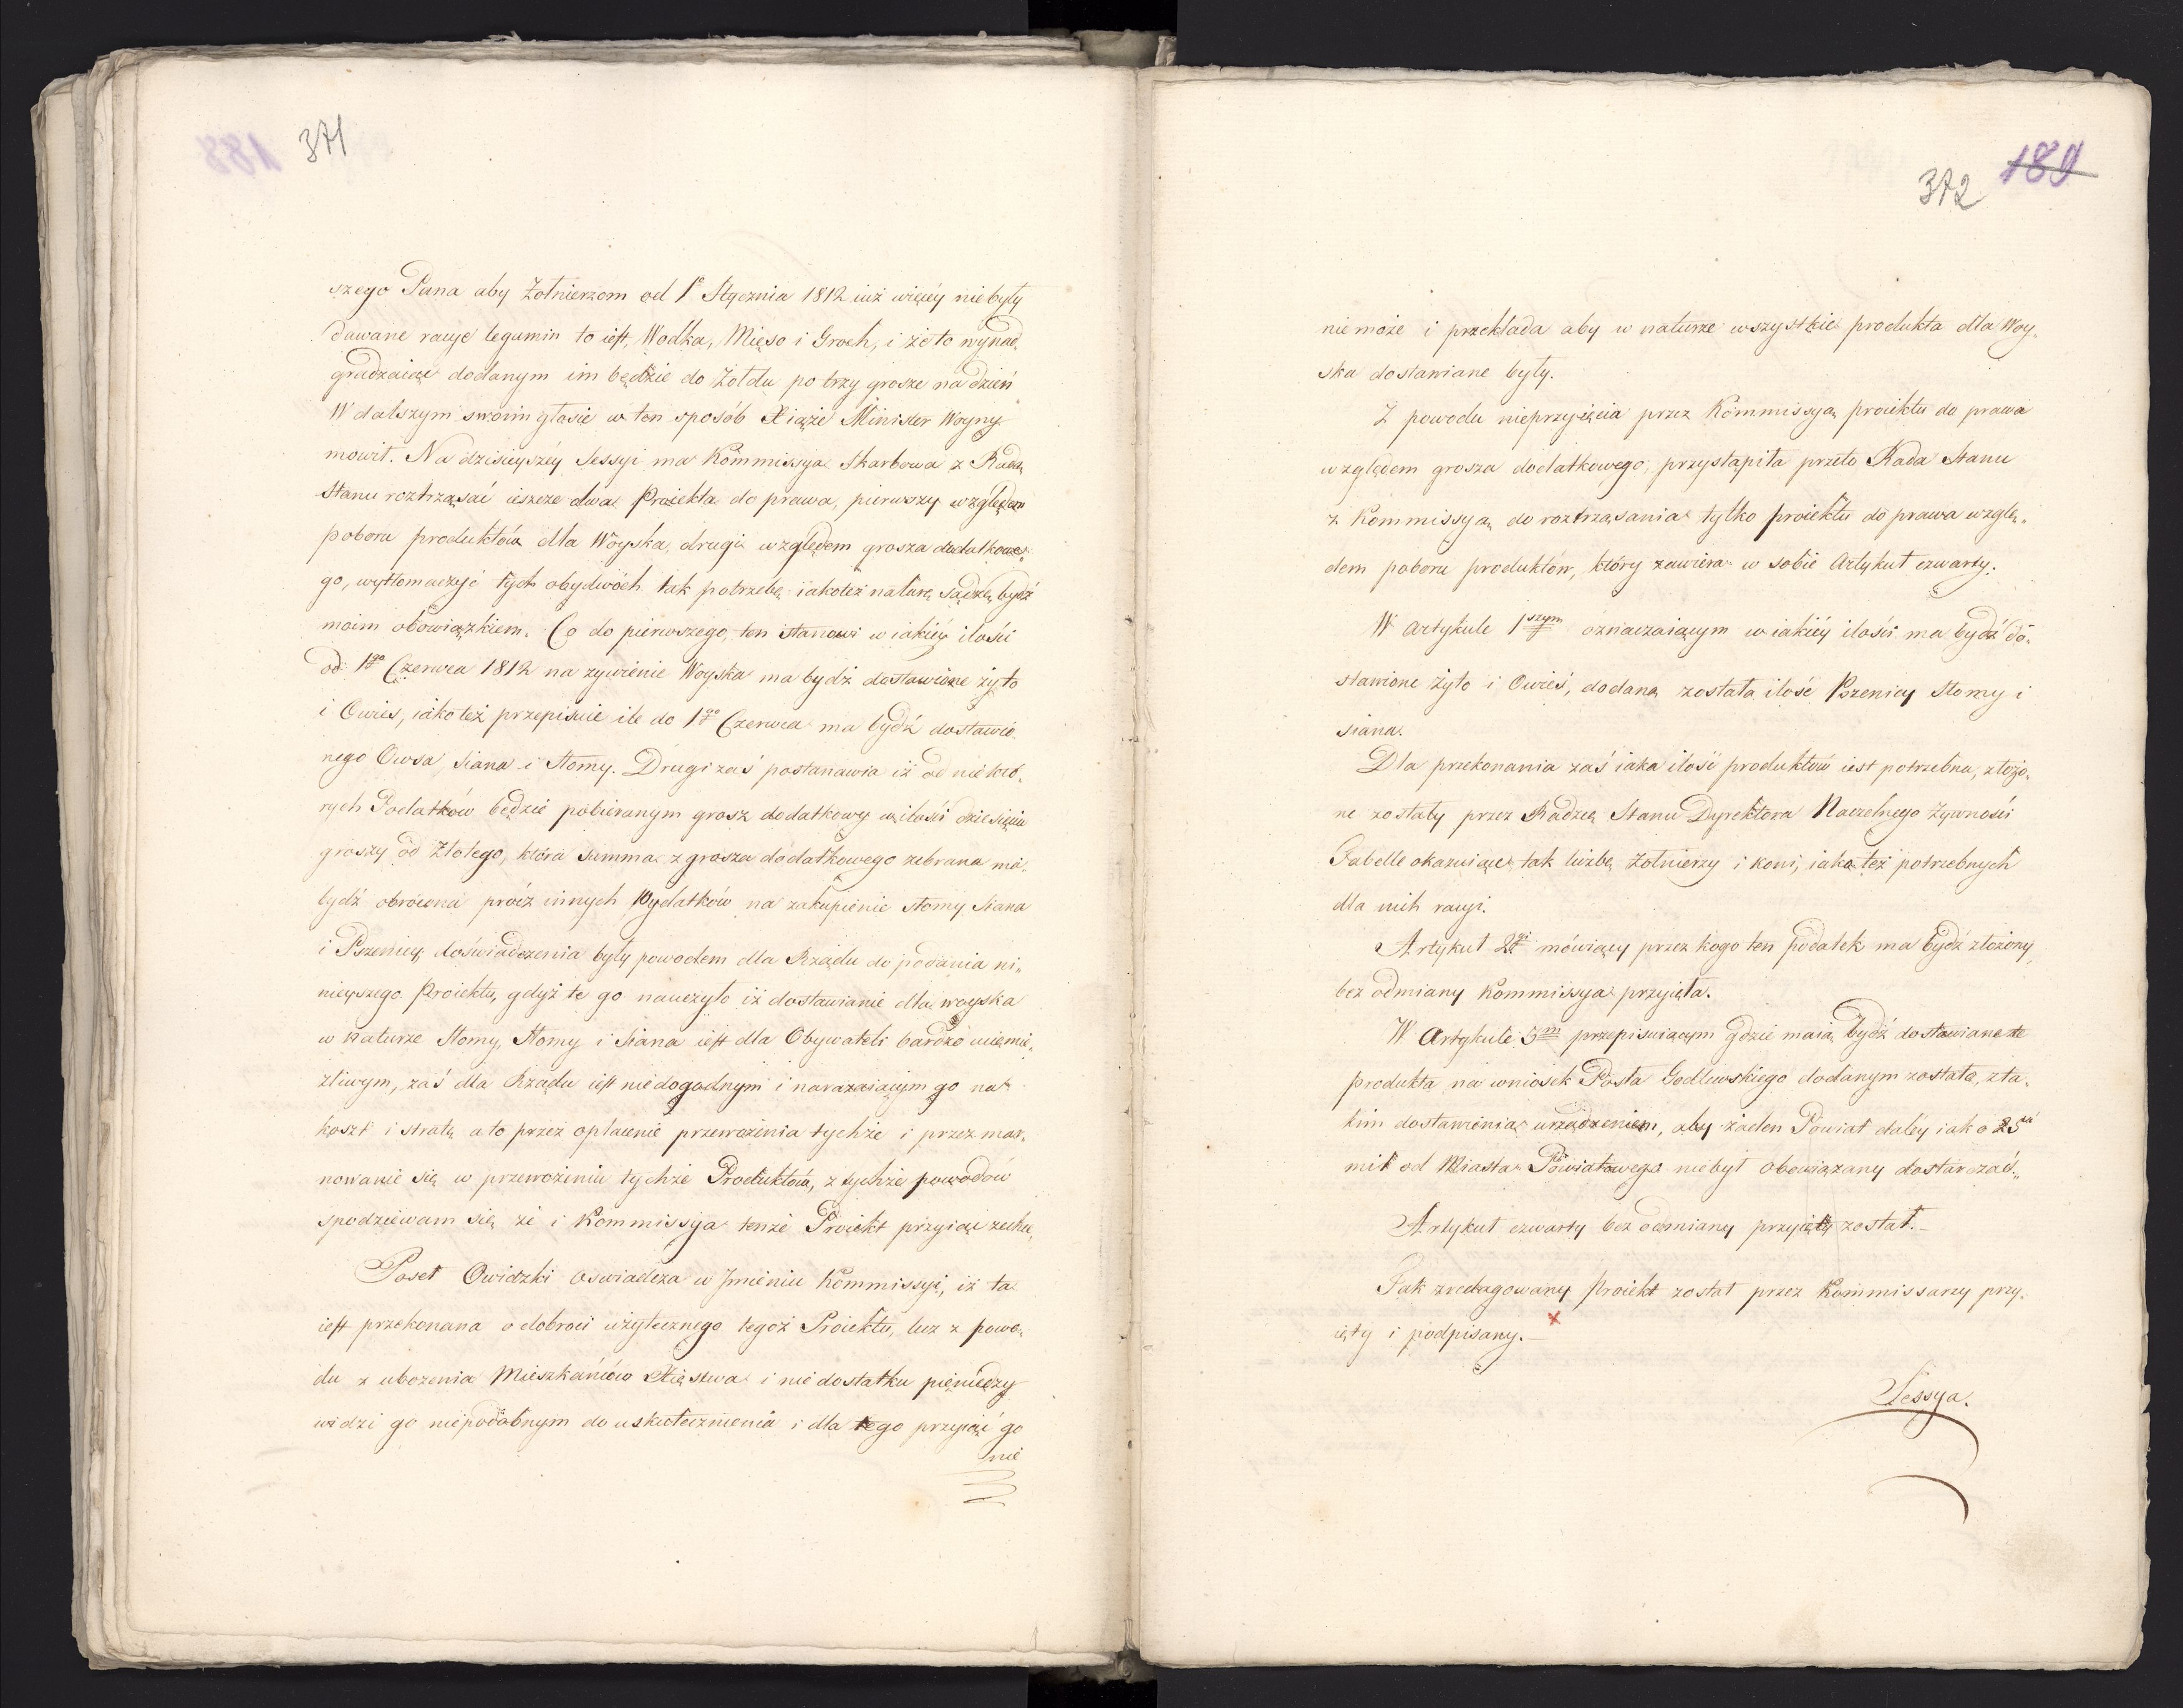 371
szego Pana aby Żołnierzom od 1o Stycznia 1812 iuż więcéy niebyły
dawane racye legumin to iest, Wodka, Mięso i Groch, i że to wynad„
gradzaiąc dodanym im będzie do Żołdu po trzy grosze na dzień
W dalszym swoim głosie w ten sposób Xiąże Minister Woyny
mowił. Na dzisieyszéy Sessyi ma Kommissya Skarbowa z Radą
Stanu roztrząsać ieszcze dwa Proiekta do prawa, pierwszy względem
poboru produktów dla Woyska, drugi względem grosza dodatkowe„
go, wytłomaczyć tych obydwóch tak potrzebę iakoteż naturę sądzę bydź
moim obowiązkiem. Co do pierwszego, ten stanowi w iakiéy ilości
od 1go Czerwca 1812 na zywienie Woyska ma bydź dostawione żyto
i Owies, iako też przepisuie ile do 1go Czerwca ma bydź dostawio„
nego Owsa, Siana i Słomy. Drugi zaś postanawia iż od niektó„
rych Podatków będzie pobieranym grosz dodatkowy w ilości dziesięciu
groszy od Złotego, która Summa z grosza dodatkowego zebrana ma„
bydź obrócona prócz innych Wydatków na zakupienie słomy Siana
i Pszenicy, doświadczenia były powodem dla Rządu do podania ni„
nieyszego Proiektu, gdyż te go nauczyło iż dostawianie dla woyska
w naturze Słomy, Słomy i Siana iest dla Obywateli bardzo uciemię„
zliwym, zaś dla Rządu iest niedogodnym i narażaiącym go na
koszt i stratę a to przez opłacenie przewożenia tychże i przez mar„
nowanie się w przewożeniu tychże Produktów, z tychże powodów
spodziewam się że i Kommissya tenże Proiekt przyiąć zechce,
Poseł Owidzki oswiadcza w Imieniu Kommissyi, iż ta
iest przekonana o dobroci użytecznego tegoż Proiektu, lecz z powo„
du z ubożenia Mieszkańców Xięstwa i niedostatku pieniędzy
widzi go niepodobnym do uskutecznienia i dla tego przyiąć go
nie
189
372
niemoże i przekłada aby w naturze wszystkie produkta dla Woy„
ska dostawiane były.
Z powodu nieprzyięcia przez Kommissyą proiektu do prawa
względem grosza dodatkowego, przystąpiła przeto Rada Stanu
z Kommissyą do roztrząsania tylko proiektu do prawa wzglę„
dem poboru produktów, który zawiera w sobie Artykuł czwarty.
W Artykule 1szym oznaczaiącym w iakiéy ilości ma bydź do„
stawione żyto i Owies, dodaną została ilość Pszenicy Słomy i
siana.
Dla przekonania zaś iaka ilość produktów iest potrzebna, złożo„
ne zostały przez Radzcę Stanu Dyrektora Naczelnego Żywności
Tabelle okazuiące tak liczbę żołnierzy i koni, iako też potrzebnych
dla nich racyi.
Artykuł 2gi mówiący przez kogo ten podatek ma bydź złożony,
bez odmiany Kommissya przyięła.
W Artykule 3m przepisuiącym gdzie maią bydź dostawiane te
produkta na wniosek Posła Godlewskiego dodanym zostało, z ta„
kim dostawienia urządzeniem, aby żaden Powiat daléy iako 25
mil od Miasta Powiatowego niebył obowiązany dostarczać„
Artykuł czwarty bez odmiany przyięty został.
Tak zredagowany Proiekt został przez Kommissarzy przy„
ięty i podpisany.
Sessya.